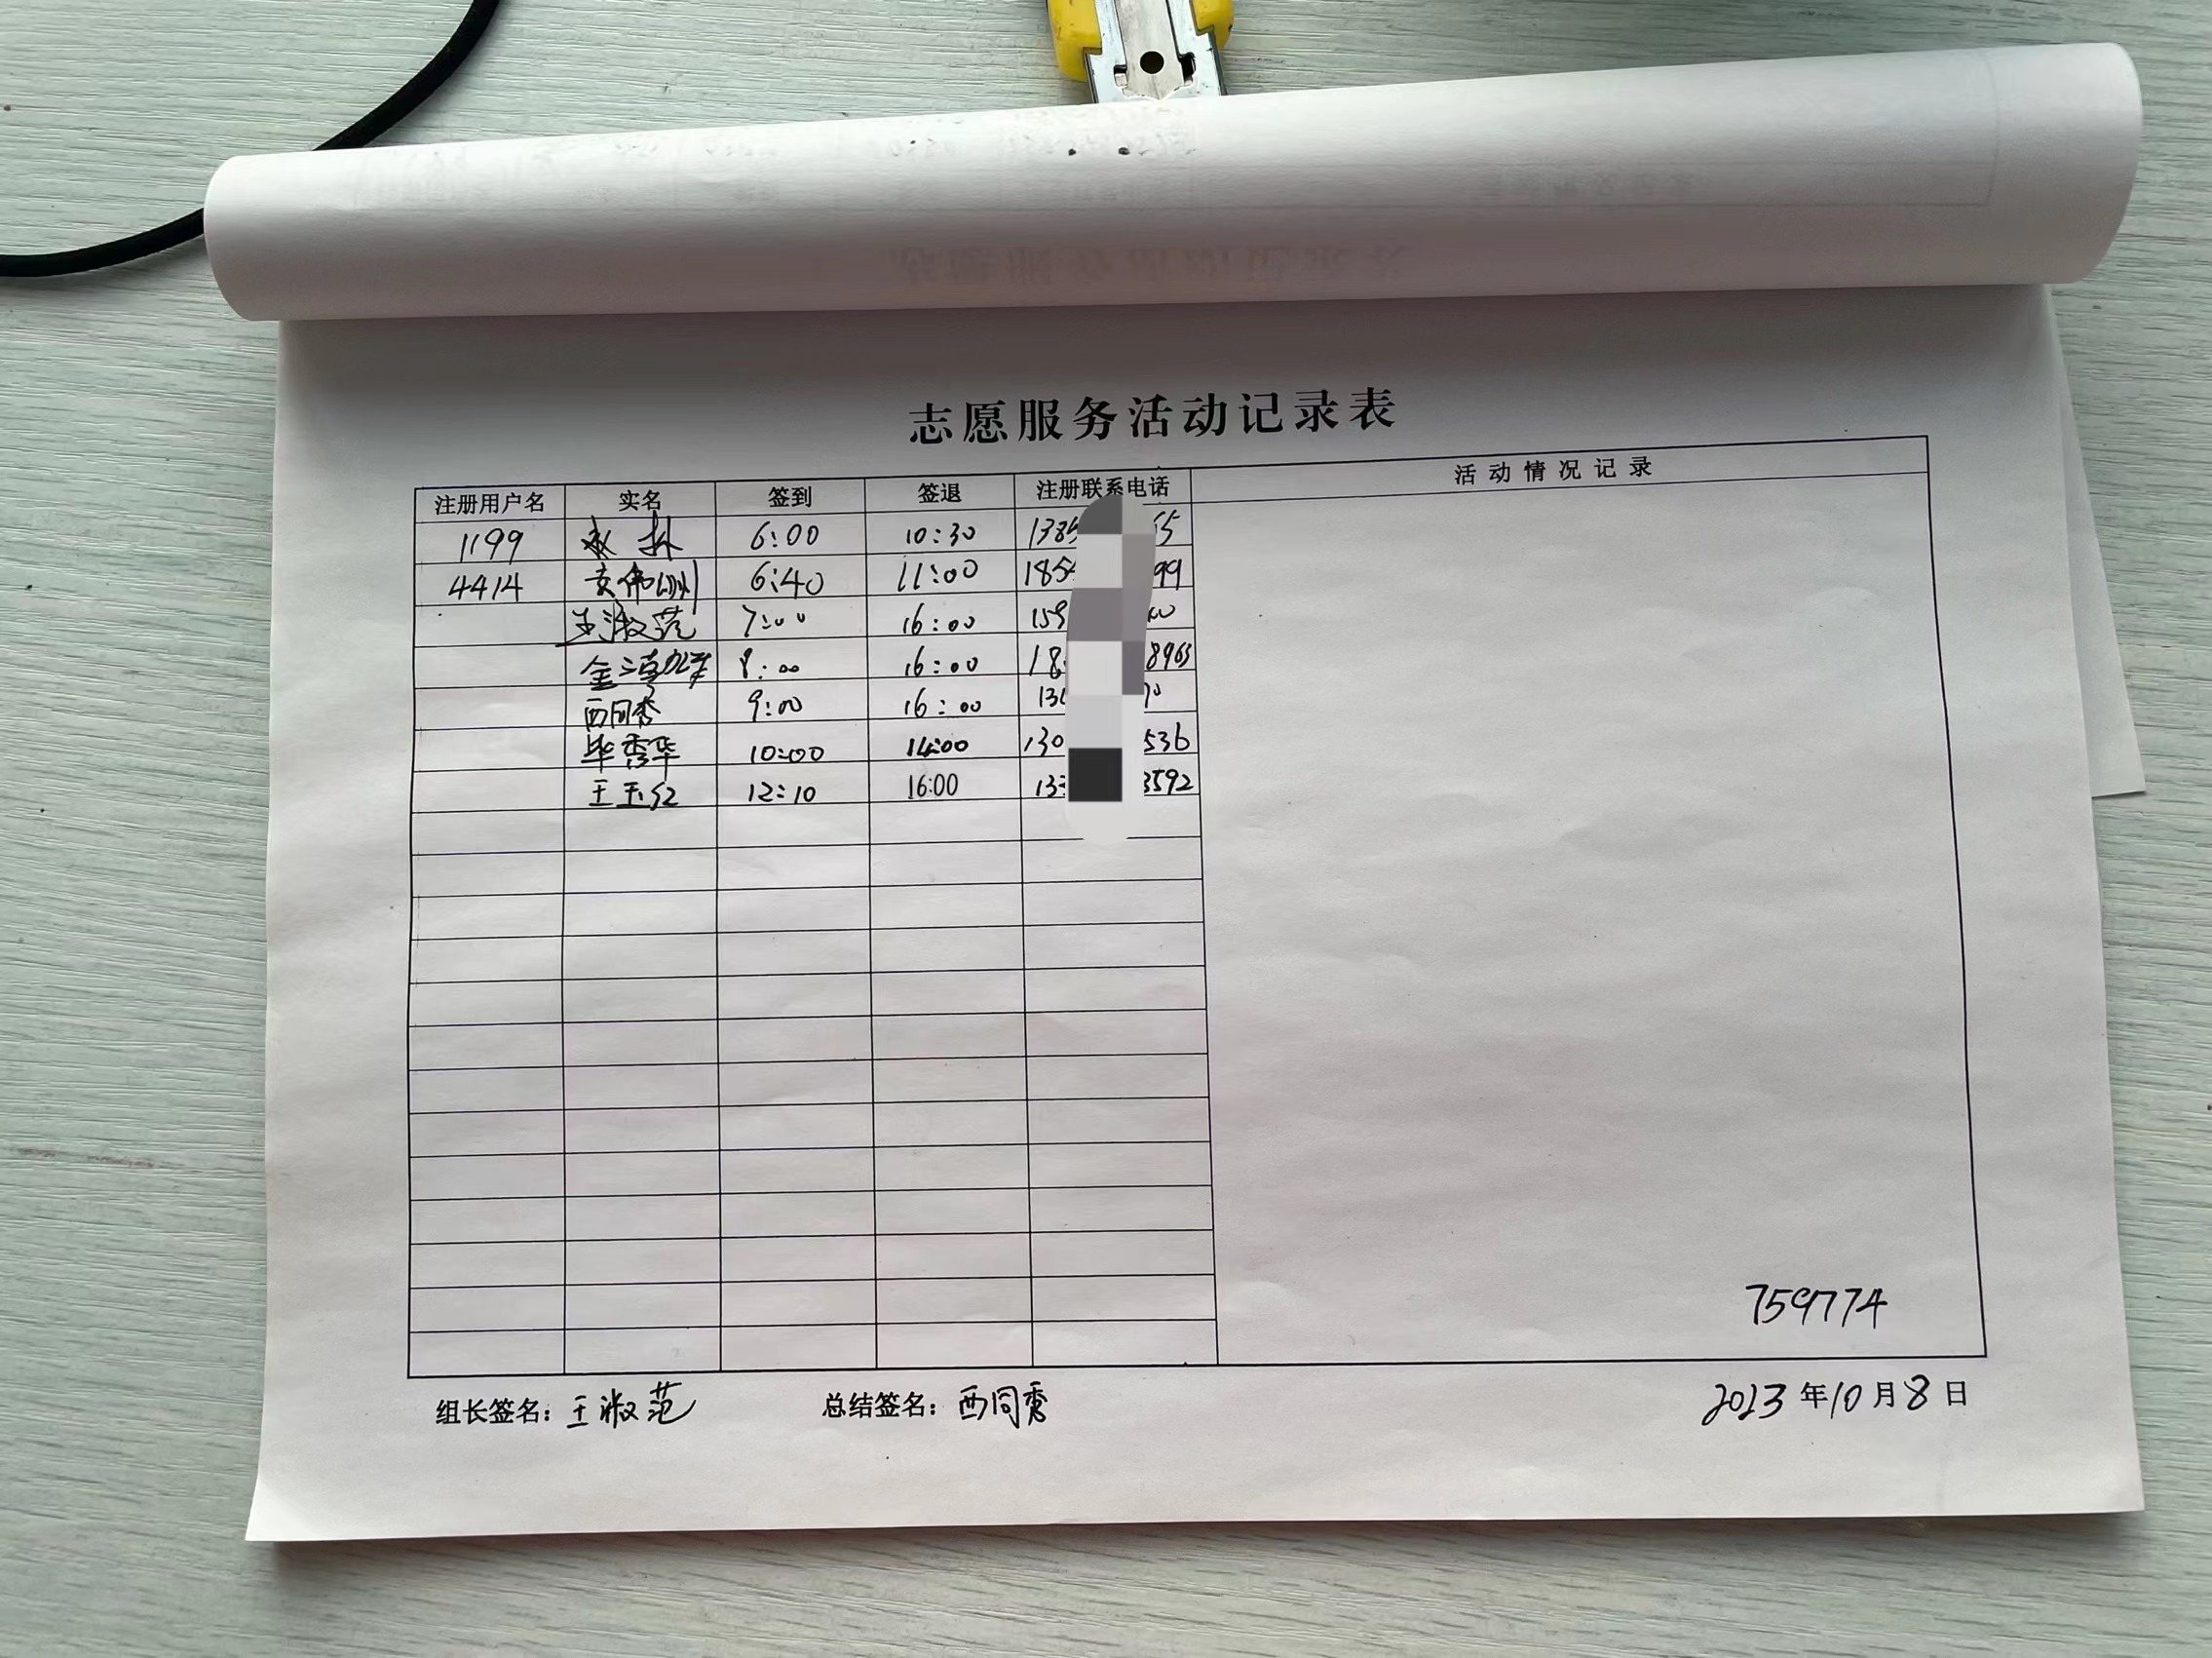 志愿服务活动记录表
注册用户名 实名 签到 签退 注册联系电话 活动情况记录
1199 6:00 10:30 1385 55
4414 6:40 11:00 185 99
王淑范 7:00 16:00 159
金 8:00 16:00 18 8963
西同秀 9:00 16:00 13 70
毕秀华 10:00 14:00 130 536
王玉红 12:10 16:00 133 3592
759774
组长签名：王淑范 总结签名：西同秀 2013年10月8日